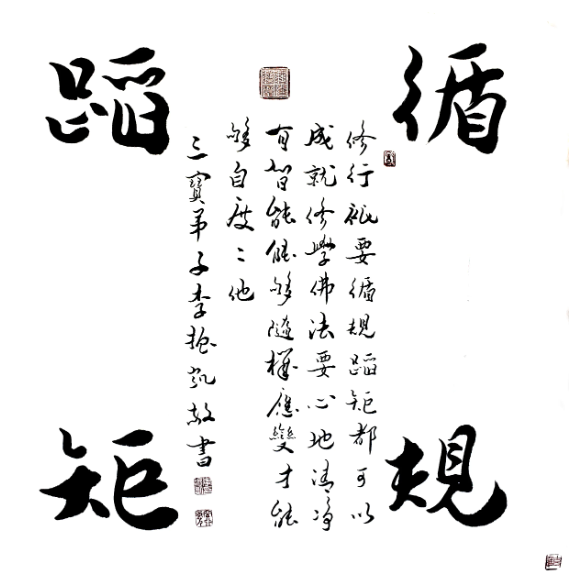 循規
蹈矩
修行祇要循規蹈矩都可以
成就修學佛法要心地清淨
有智能能够隨機應變才能
够自度〻他
三寶弟子李凱敬書